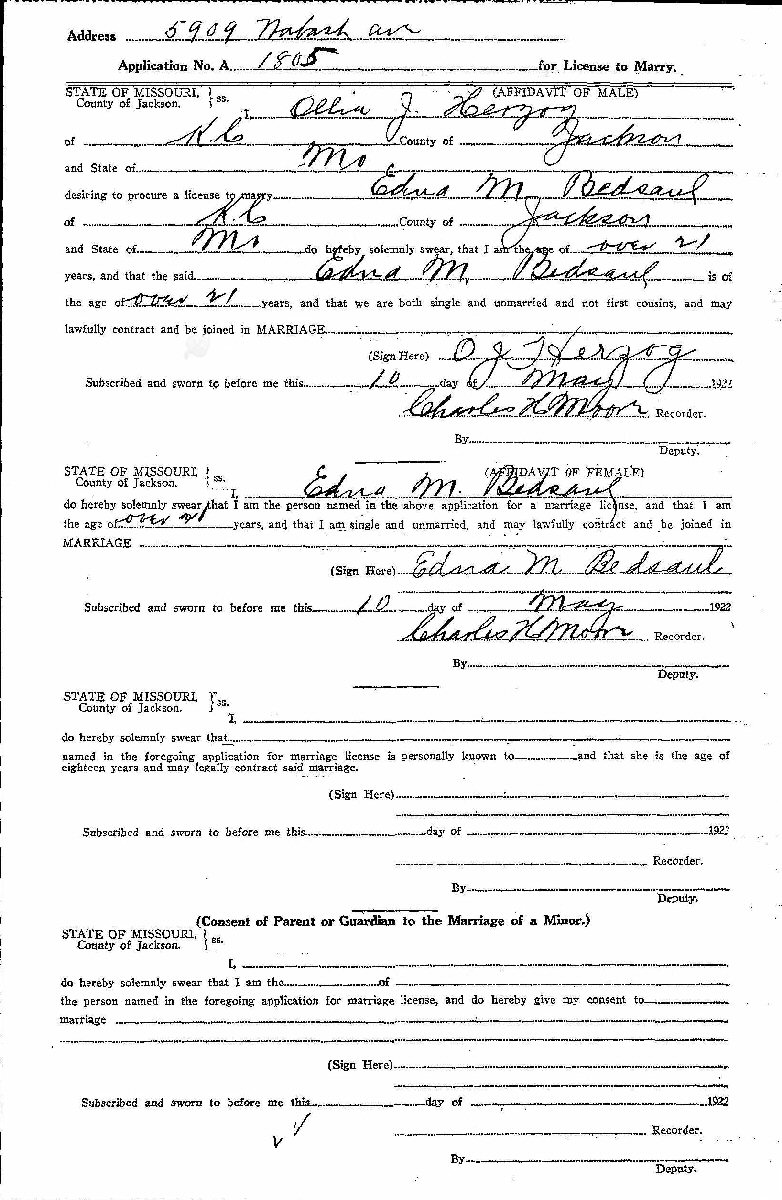 Address 5909 Wabash av
Application No. A 1805 for License to Marry.
STATE OF MISSOURI, } ss. (AFFIDAVIT OF MALE)
County of Jackson.
I, Ollia J. Herzog
of K C County of Jackson
and State of Mo
desiring to procure a license to marry Edna M. Bedsaul
of K C County of Jackson
and State of Mo do hereby solemnly swear, that I am the age of over 21
years, and that the said Edna M. Bedsaul is of
the age of over 21 years, and that we are both single and unmarried and not first cousins, and may
lawfully contract and be joined in MARRIAGE
(Sign Here) O J Herzog
Subscribed and sworn to before me this 10 day of May 1922
Charles H Moore Recorder.
By
Deputy.
STATE OF MISSOURI, } ss. (AFFIDAVIT OF FEMALE)
County of Jackson.
I, Edna M. Bedsaul
do hereby solemnly swear that I am the person named in the above application for a marriage license, and that I am
the age of over 21 years, and that I am single and unmarried, and may lawfully contract and be joined in
MARRIAGE
(Sign Here) Edna M Bedsaul
Subscribed and sworn to before me this 10 day of May 1922
Charles H Moore Recorder.
By
Deputy.
STATE OF MISSOURI, } ss.
County of Jackson.
I,
do hereby solemnly swear that
named in the foregoing application for marriage license is personally known to and that she is the age of
eighteen years and may legally contract said marriage.
(Sign Here)
Subscribed and sworn to before me this day of 1922
Recorder.
By
Deputy.
(Consent of Parent or Guardian to the Marriage of a Minor.)
STATE OF MISSOURI, } ss.
County of Jackson.
I,
do hereby solemnly swear that I am the of
the person named in the foregoing application for marriage license, and do hereby give my consent to
marriage
(Sign Here)
Subscribed and sworn to before me this day of 1922
Recorder.
By
Deputy.